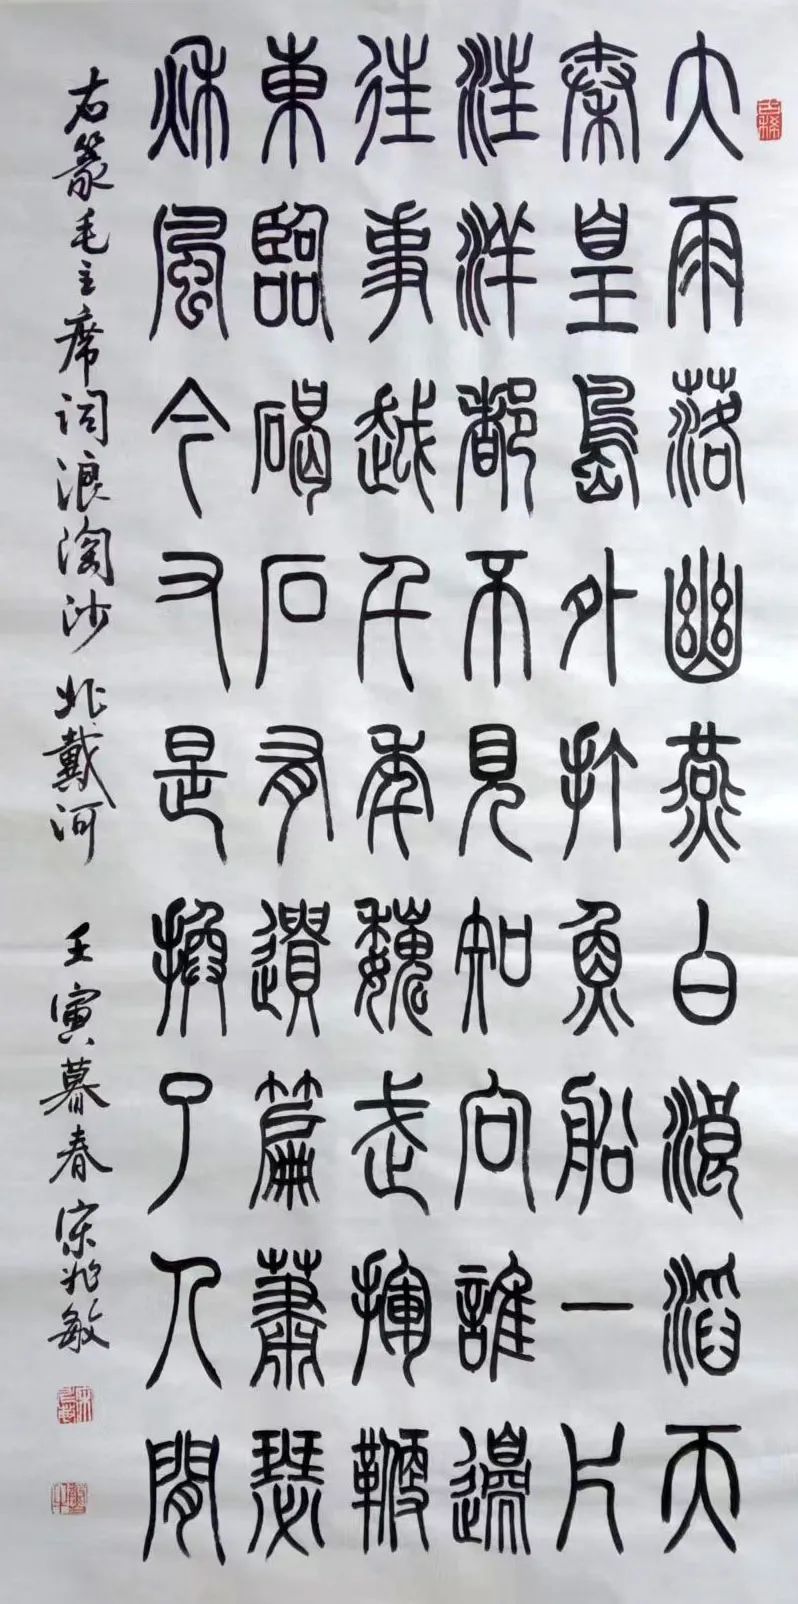 大雨落幽燕白浪滔天
秦皇島外打魚船一片
汪洋都不見知向誰邊
往事越千年魏武揮鞭
東臨碣石有遺篇蕭瑟
秌風今又是換了人閒
右篆毛主席词浪淘沙 北戴河 壬寅暮春宋兆敏